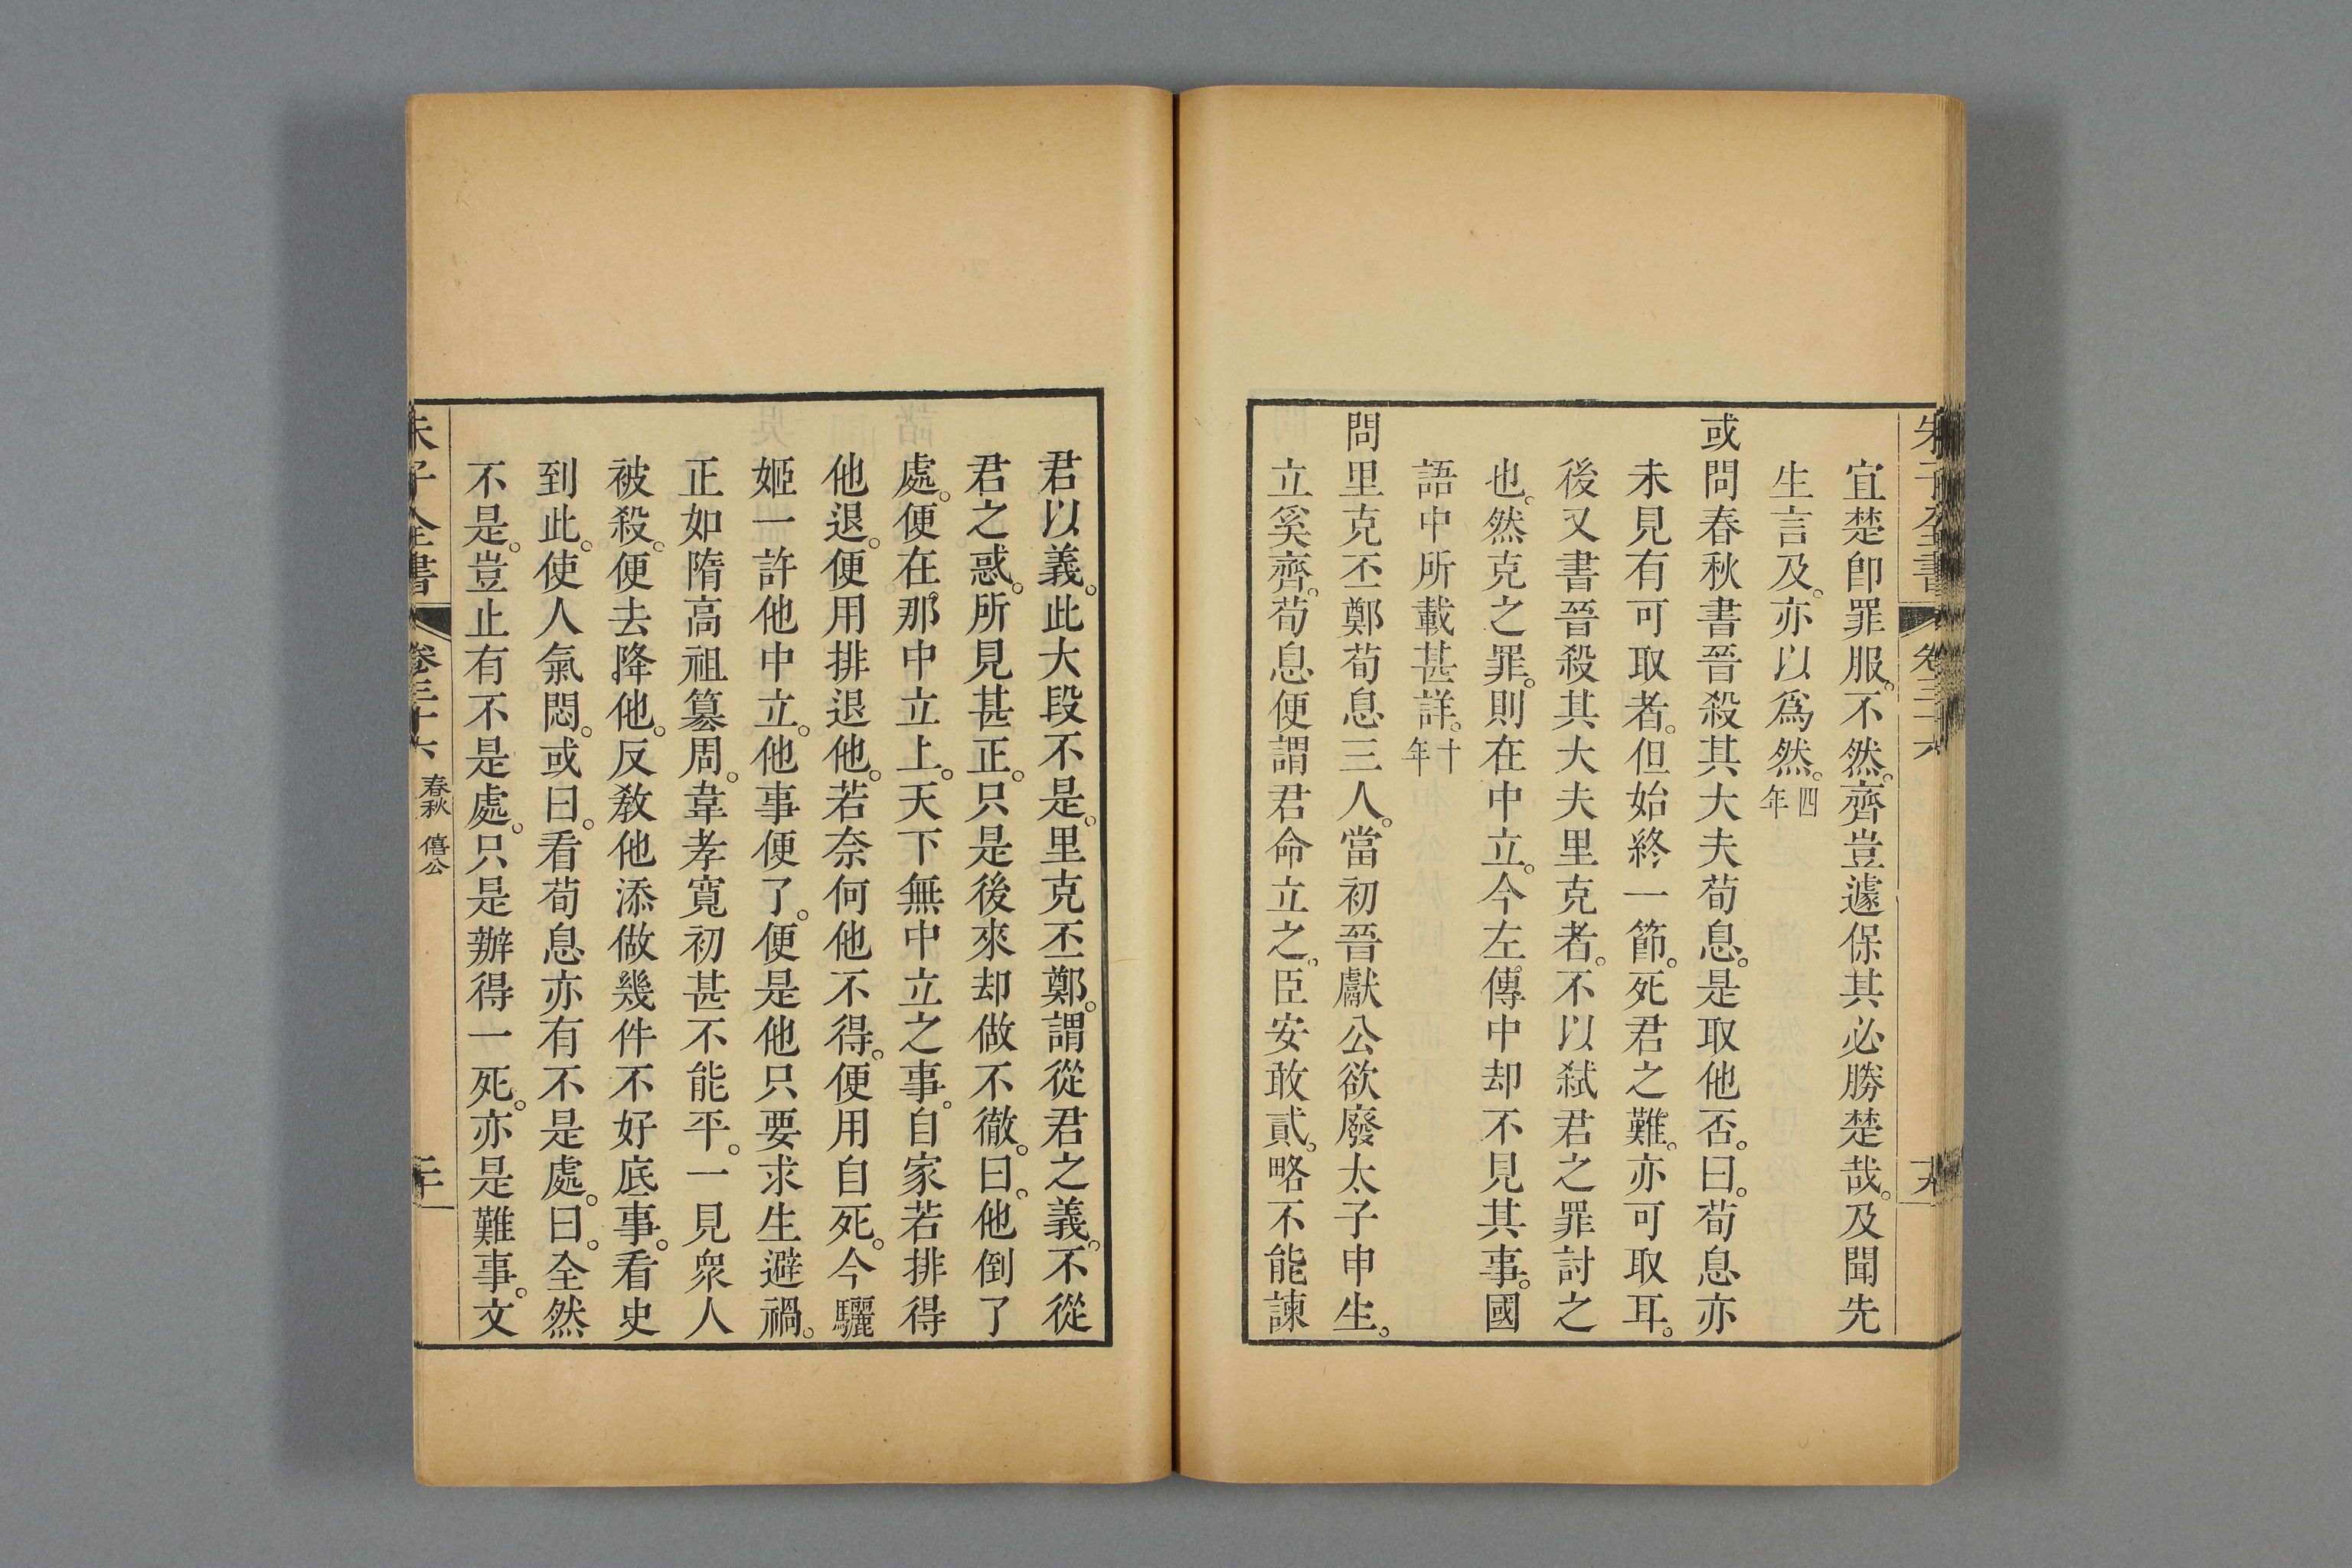 朱子全書 卷三十六
宜楚卽罪服。不然。齊豈遽保其必勝楚哉。及聞先
生言及。亦以爲然。四年
或問春秋書晉殺其大夫荀息。是取他否。曰。荀息亦
未見有可取者。但始終一節。死君之難。亦可取耳。
後又書晉殺其大夫里克者。不以弑君之罪討之
也。然克之罪。則在中立。今左傳中却不見其事。國
語中所載甚詳。十年
問里克丕鄭荀息三人。當初晉獻公欲廢太子申生。
立奚齊。荀息便謂君命立之。臣安敢貳。略不能諫
君以義。此大段不是。里克丕鄭。謂從君之義。不從
君之惑。所見甚正。只是後來却做不徹。曰。他倒了
處。便在那中立上。天下無中立之事。自家若排得
他退。便用排退他。若奈何他不得。便用自死。今驪
姬一許他中立。他事便了。便是他只要求生避禍。
正如隋高祖篡周。韋孝寬初甚不能平。一見衆人
被殺。便去降他。反敎他添做幾件不好底事。看史
到此。使人氣悶。或曰。看荀息亦有不是處。曰。全然
不是。豈止有不是處。只是辦得一死。亦是難事。文
朱子全書 卷三十六 春秋 僖公 二十